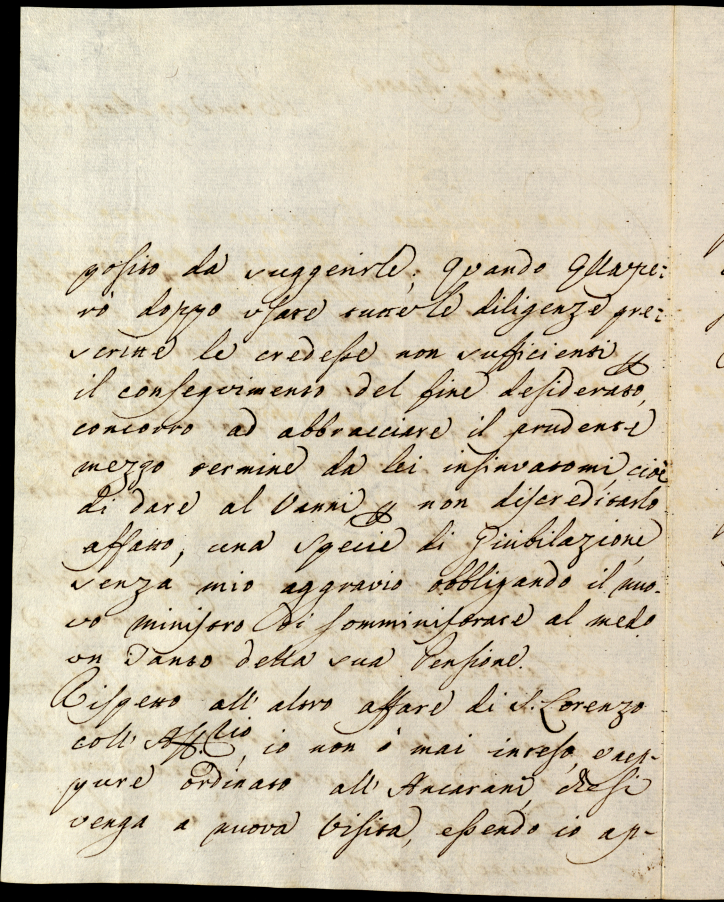 posito da suggerirle; Quando Ella pe:
rò doppo usate tutte le diligenze pre:
scritte le credesse non sufficienti p
il conseguimento del fine desiderato,
concorro ad abbracciare il prudente
mezzo termine da lei insinuatomi, cioè
di dare al Vanni p non discreditarlo
affatto, una specie di Giubilazione,
senza mio aggravio obbligando il nuo-
vo ministro di somministrare al medo
un Tanto della sua Pensione.
Rispetto all' altro affare di S. Lorenzo
coll' io non ò mai inteso,
pure ordinato all' Ancarani, che si
venga a nuova Visita, essendo io ap-